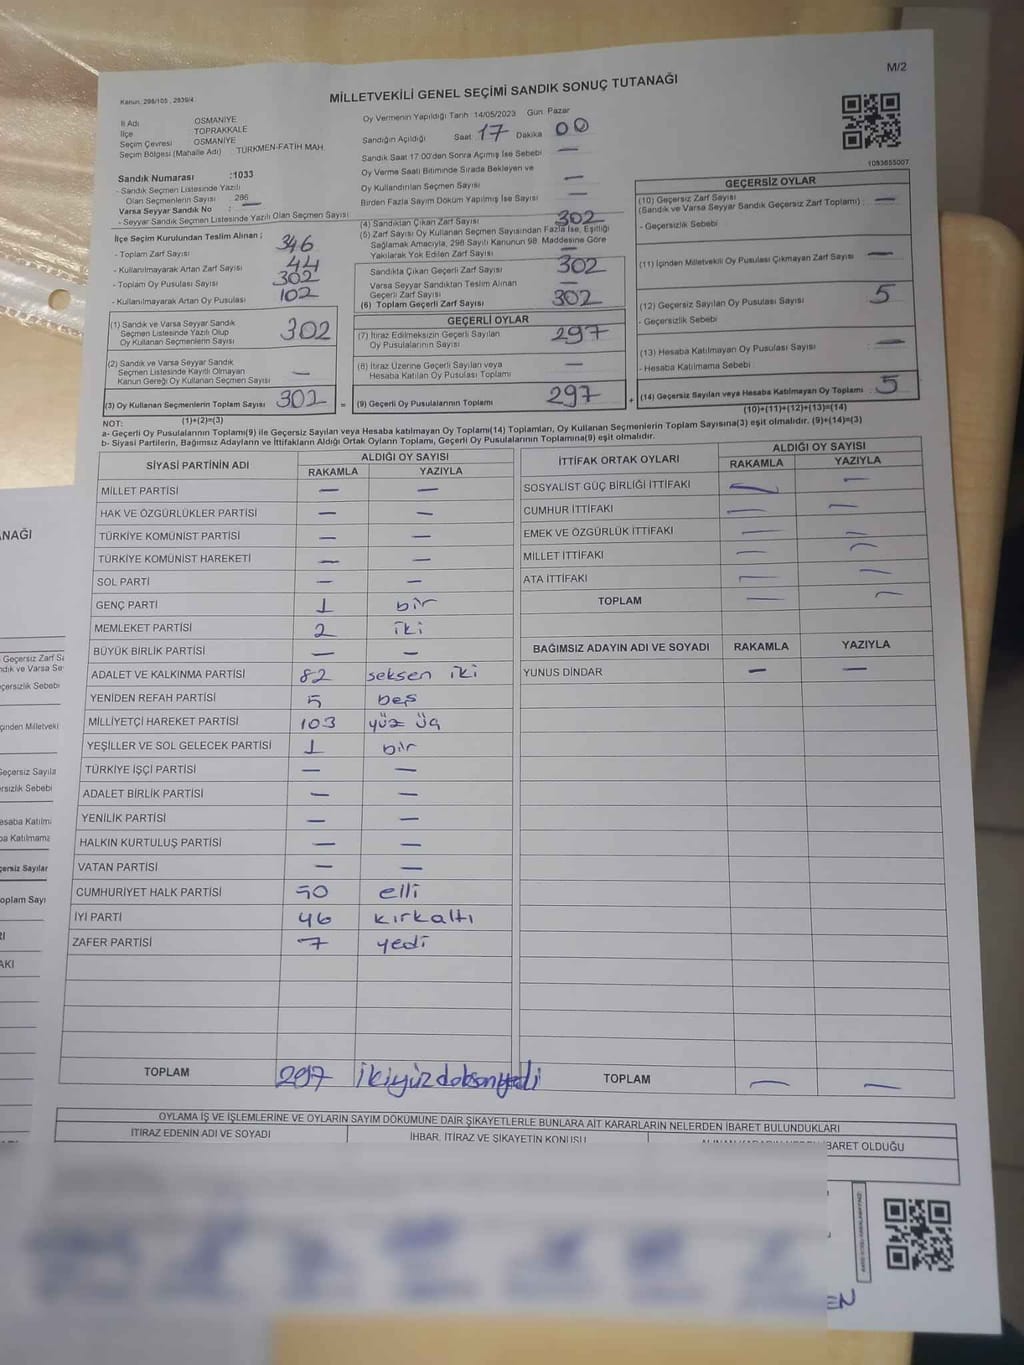 M/2
Kanun: 298/105 , 2839/4
MİLLETVEKİLİ GENEL SEÇİMİ SANDIK SONUÇ TUTANAĞI
İl Adı OSMANİYE
İlçe TOPRAKKALE
Seçim Çevresi OSMANİYE
Seçim Bölgesi (Mahalle Adı) : TÜRKMEN-FATİH MAH.
Oy Vermenin Yapıldığı Tarih 14/05/2023 Gün: Pazar
Sandığın Açıldığı Saat 17 Dakika 00
Sandık Saat 17:00'den Sonra Açımış İse Sebebi —
Oy Verme Saati Bitiminde Sırada Bekleyen ve
Oy Kullandırılan Seçmen Sayısı —
Birden Fazla Sayım Döküm Yapılmış İse Sayısı —
1083655007
Sandık Numarası :1033
- Sandık Seçmen Listesinde Yazılı
Olan Seçmenlerin Sayısı : 286
Varsa Seyyar Sandık No : —
- Seyyar Sandık Seçmen Listesinde Yazılı Olan Seçmen Sayısı
İlçe Seçim Kurulundan Teslim Alınan ;
- Toplam Zarf Sayısı 346
- Kullanılmayarak Artan Zarf Sayısı 44
- Toplam Oy Pusulası Sayısı 302
- Kullanılmayarak Artan Oy Pusulası 102
(1) Sandık ve Varsa Seyyar Sandık
Seçmen Listesinde Yazılı Olup
Oy Kullanan Seçmenlerin Sayısı 302
(2) Sandık ve Varsa Seyyar Sandık
Seçmen Listesinde Kayıtlı Olmayan
Kanun Gereği Oy Kullanan Seçmen Sayısı —
(3) Oy Kullanan Seçmenlerin Toplam Sayısı 302 =
(1)+(2)=(3)
(4) Sandıktan Çıkan Zarf Sayısı 302
(5) Zarf Sayısı Oy Kullanan Seçmen Sayısından Fazla İse, Eşitliği
Sağlamak Amacıyla, 298 Sayılı Kanunun 98. Maddesine Göre
Yakılarak Yok Edilen Zarf Sayısı —
Sandıkta Çıkan Geçerli Zarf Sayısı 302
Varsa Seyyar Sandıktan Teslim Alınan
Geçerli Zarf Sayısı —
(6) Toplam Geçerli Zarf Sayısı 302
GEÇERLİ OYLAR
(7) İtiraz Edilmeksizin Geçerli Sayılan
Oy Pusulalarının Sayısı 297
(8) İtiraz Üzerine Geçerli Sayılan veya
Hesaba Katılan Oy Pusulası Toplamı —
(9) Geçerli Oy Pusulalarının Toplamı 297 +
GEÇERSİZ OYLAR
(10) Geçersiz Zarf Sayısı
(Sandık ve Varsa Seyyar Sandık Geçersiz Zarf Toplamı) : —
- Geçersizlik Sebebi
(11) İçinden Milletvekili Oy Pusulası Çıkmayan Zarf Sayısı —
(12) Geçersiz Sayılan Oy Pusulası Sayısı 5
- Geçersizlik Sebebi
(13) Hesaba Katılmayan Oy Pusulası Sayısı —
- Hesaba Katılmama Sebebi
(14) Geçersiz Sayılan veya Hesaba Katılmayan Oy Toplamı : 5
(10)+(11)+(12)+(13)=(14)
NOT:
a- Geçerli Oy Pusulalarının Toplam(9) ile Geçersiz Sayılan veya Hesaba katılmayan Oy Toplamı(14) Toplamları, Oy Kullanan Seçmenlerin Toplam Sayısına(3) eşit olmalıdır. (9)+(14)=(3)
b- Siyasi Partilerin, Bağımsız Adayların ve İttifakların Aldığı Ortak Oyların Toplamı, Geçerli Oy Pusulalarının Toplamına(9) eşit olmalıdır.
SİYASİ PARTİNİN ADI ALDIĞI OY SAYISI
RAKAMLA YAZIYLA
MİLLET PARTİSİ — —
HAK VE ÖZGÜRLÜKLER PARTİSİ — —
TÜRKİYE KOMÜNİST PARTİSİ — —
TÜRKİYE KOMÜNİST HAREKETİ — —
SOL PARTİ — —
GENÇ PARTİ 1 bir
MEMLEKET PARTİSİ 2 iki
BÜYÜK BİRLİK PARTİSİ — —
ADALET VE KALKINMA PARTİSİ 82 seksen iki
YENİDEN REFAH PARTİSİ 5 beş
MİLLİYETÇİ HAREKET PARTİSİ 103 yüz üç
YEŞİLLER VE SOL GELECEK PARTİSİ 1 bir
TÜRKİYE İŞÇİ PARTİSİ — —
ADALET BİRLİK PARTİSİ — —
YENİLİK PARTİSİ — —
HALKIN KURTULUŞ PARTİSİ — —
VATAN PARTİSİ — —
CUMHURİYET HALK PARTİSİ 50 elli
İYİ PARTİ 46 kırkaltı
ZAFER PARTİSİ 7 yedi
TOPLAM 297 ikiyüzdoksanyedi
İTTİFAK ORTAK OYLARI ALDIĞI OY SAYISI
RAKAMLA YAZIYLA
SOSYALİST GÜÇ BİRLİĞİ İTTİFAKI — —
CUMHUR İTTİFAKI — —
EMEK VE ÖZGÜRLÜK İTTİFAKI — —
MİLLET İTTİFAKI — —
ATA İTTİFAKI — —
TOPLAM — —
BAĞIMSIZ ADAYIN ADI VE SOYADI RAKAMLA YAZIYLA
YUNUS DİNDAR — —
TOPLAM — —
OYLAMA İŞ VE İŞLEMLERİNE VE OYLARIN SAYIM DÖKÜMÜNE DAİR ŞİKAYETLERLE BUNLARA AİT KARARLARIN NELERDEN İBARET BULUNDUKLARI
İTİRAZ EDENİN ADI VE SOYADI İHBAR, İTİRAZ VE ŞİKAYETİN KONUSU İBARET OLDUĞU